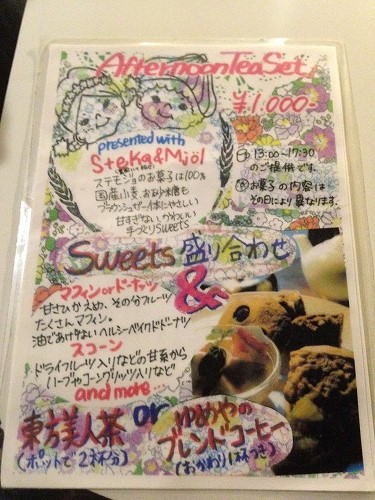 Afternoon Tea Set
¥1,000-
presented with
Steka & Mjöl
ステモジョのお菓子は100%
国産小麦、お砂糖も
ブラウンシュガー、体にやさしい
甘すぎない、かわいい
手づくりSweets
13:00~17:30
のご提供です。
お菓子の内容は
その日により異なります。
Sweets 盛り合わせ
&
マフィンorドーナッツ
甘さひかえめ、その分フルーツ
たくさんマフィン。
油であげないヘルシーベイクドドーナツ
スコーン
ドライフルーツ入りなどの甘系から
ハーブやコーングリッツ入りなど
and more...
東方美人茶
(ポットで2杯分)
or
ゆめやの
ブレンドコーヒー
(おかわり1杯つき)